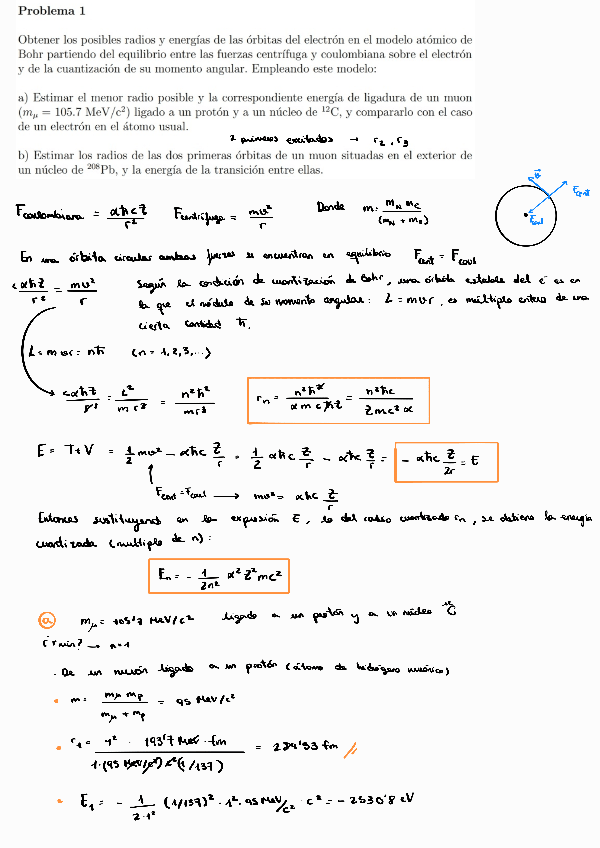 Problema 1
Obtener los posibles radios y energías de las órbitas del electrón en el modelo atómico de
Bohr partiendo del equilibrio entre las fuerzas centrífuga y coulombiana sobre el electrón
y de la cuantización de su momento angular. Empleando este modelo:
a) Estimar el menor radio posible y la correspondiente energía de ligadura de un muon
(mμ = 105.7 MeV/c²) ligado a un protón y a un núcleo de ¹²C, y compararlo con el caso
de un electrón en el átomo usual.
2 primeros excitados → r₂, r₃
b) Estimar los radios de las dos primeras órbitas de un muon situadas en el exterior de
un núcleo de ²⁰⁸Pb, y la energía de la transición entre ellas.
Fcoulombiana = αħcZ/r² Fcentrífuga = mv²/r Donde
Fcent
Fcoul
En una órbita circular ambas fuerzas se encuentran en equilibrio Fcent = Fcoul
cαħZ/r² = mv²/r Según la condición de cuantización de Bohr, una órbita estable del e⁻ es en
la que el módulo de su momento angular: L = mvr, es múltiplo entero de una
cierta cantidad ħ.
L = mvr = nħ (n = 1, 2, 3, ...)
cαħZ/r² = L²/mr³ = n²ħ²/mr³ rₙ = n²ħ²/αmcħZ = n²ħc/Zmc²α
E = T+V = 1/2 mv² - αħc Z/r = 1/2 αħc Z/r - αħc Z/r = - αħc Z/2r = E
Fcent = Fcoul → mv² = αħc Z/r
Entonces sustituyendo en la expresión E, lo del radio cuantizado rₙ, se obtiene la energía
cuantizada (múltiplo de n):
Eₙ = - 1/2n² α²Z²mc²
a) mμ = 105'7 MeV/c² ligado a un protón y a un núcleo ¹²C
¿r min? → n=1
. De un muón ligado a un protón (átomo de hidrógeno muónico)
• m = mμ mp / mμ + mp = 95 MeV/c²
• r₁ = 1² · 193'7 MeV · fm / 1·(95 MeV/c²) c²(1/137) = 284'53 fm
• E₁ = - 1/2·1² (1/137)² · 1² · 95 MeV/c² · c² = - 2530'8 eV